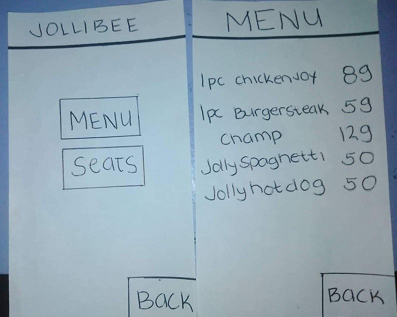 JOLLIBEE
MENU
Seats
BACK
MENU
1pc chickenjoy 89
1pc Burgersteak 59
champ 129
JollySpaghetti 50
Jollyhotdog 50
BACK